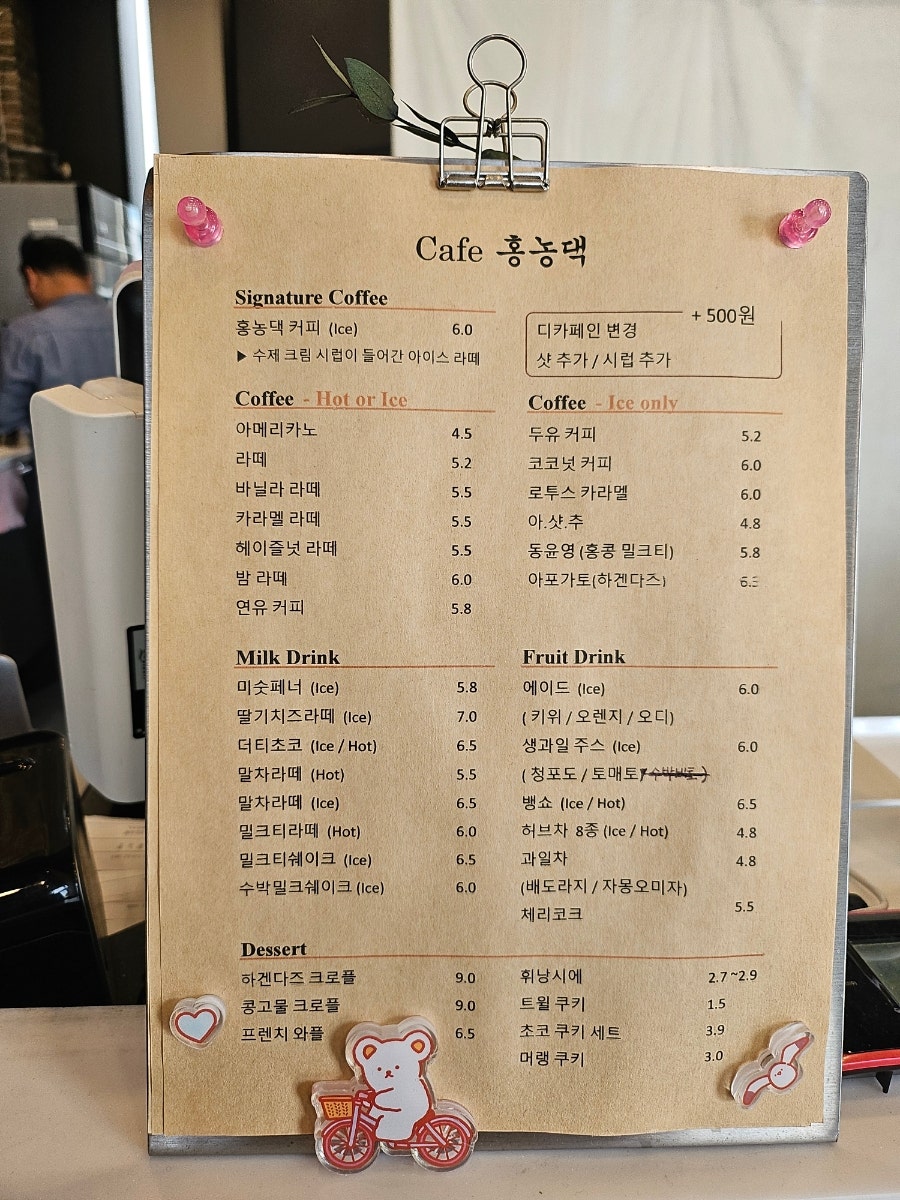 Cafe 홍농댁
Signature Coffee
홍농댁 커피 (Ice) 6.0
▶ 수제 크림 시럽이 들어간 아이스 라떼
+ 500원
디카페인 변경
샷 추가 / 시럽 추가
Coffee - Hot or Ice
아메리카노 4.5
라떼 5.2
바닐라 라떼 5.5
카라멜 라떼 5.5
헤이즐넛 라떼 5.5
밤 라떼 6.0
연유 커피 5.8
Coffee - Ice only
두유 커피 5.2
코코넛 커피 6.0
로투스 카라멜 6.0
아.샷.추 4.8
동윤영 (홍콩 밀크티) 5.8
아포가토(하겐다즈)
Milk Drink
미숫페너 (Ice) 5.8
딸기치즈라떼 (Ice) 7.0
더티초코 (Ice / Hot) 6.5
말차라떼 (Hot) 5.5
말차라떼 (Ice) 6.5
밀크티라떼 (Hot) 6.0
밀크티쉐이크 (Ice) 6.5
수박밀크쉐이크 (Ice) 6.0
Fruit Drink
에이드 (Ice) 6.0
( 키위 / 오렌지 / 오디)
생과일 주스 (Ice) 6.0
( 청포도 / 토매토)
뱅쇼 (Ice / Hot) 6.5
허브차 8종 (Ice / Hot) 4.8
과일차 4.8
(배도라지 / 자몽오미자)
체리코크 5.5
Dessert
하겐다즈 크로플 9.0
콩고물 크로플 9.0
프렌치 와플 6.5
휘낭시에 2.7 ~2.9
트윌 쿠키 1.5
초코 쿠키 세트 3.9
머랭 쿠키 3.0